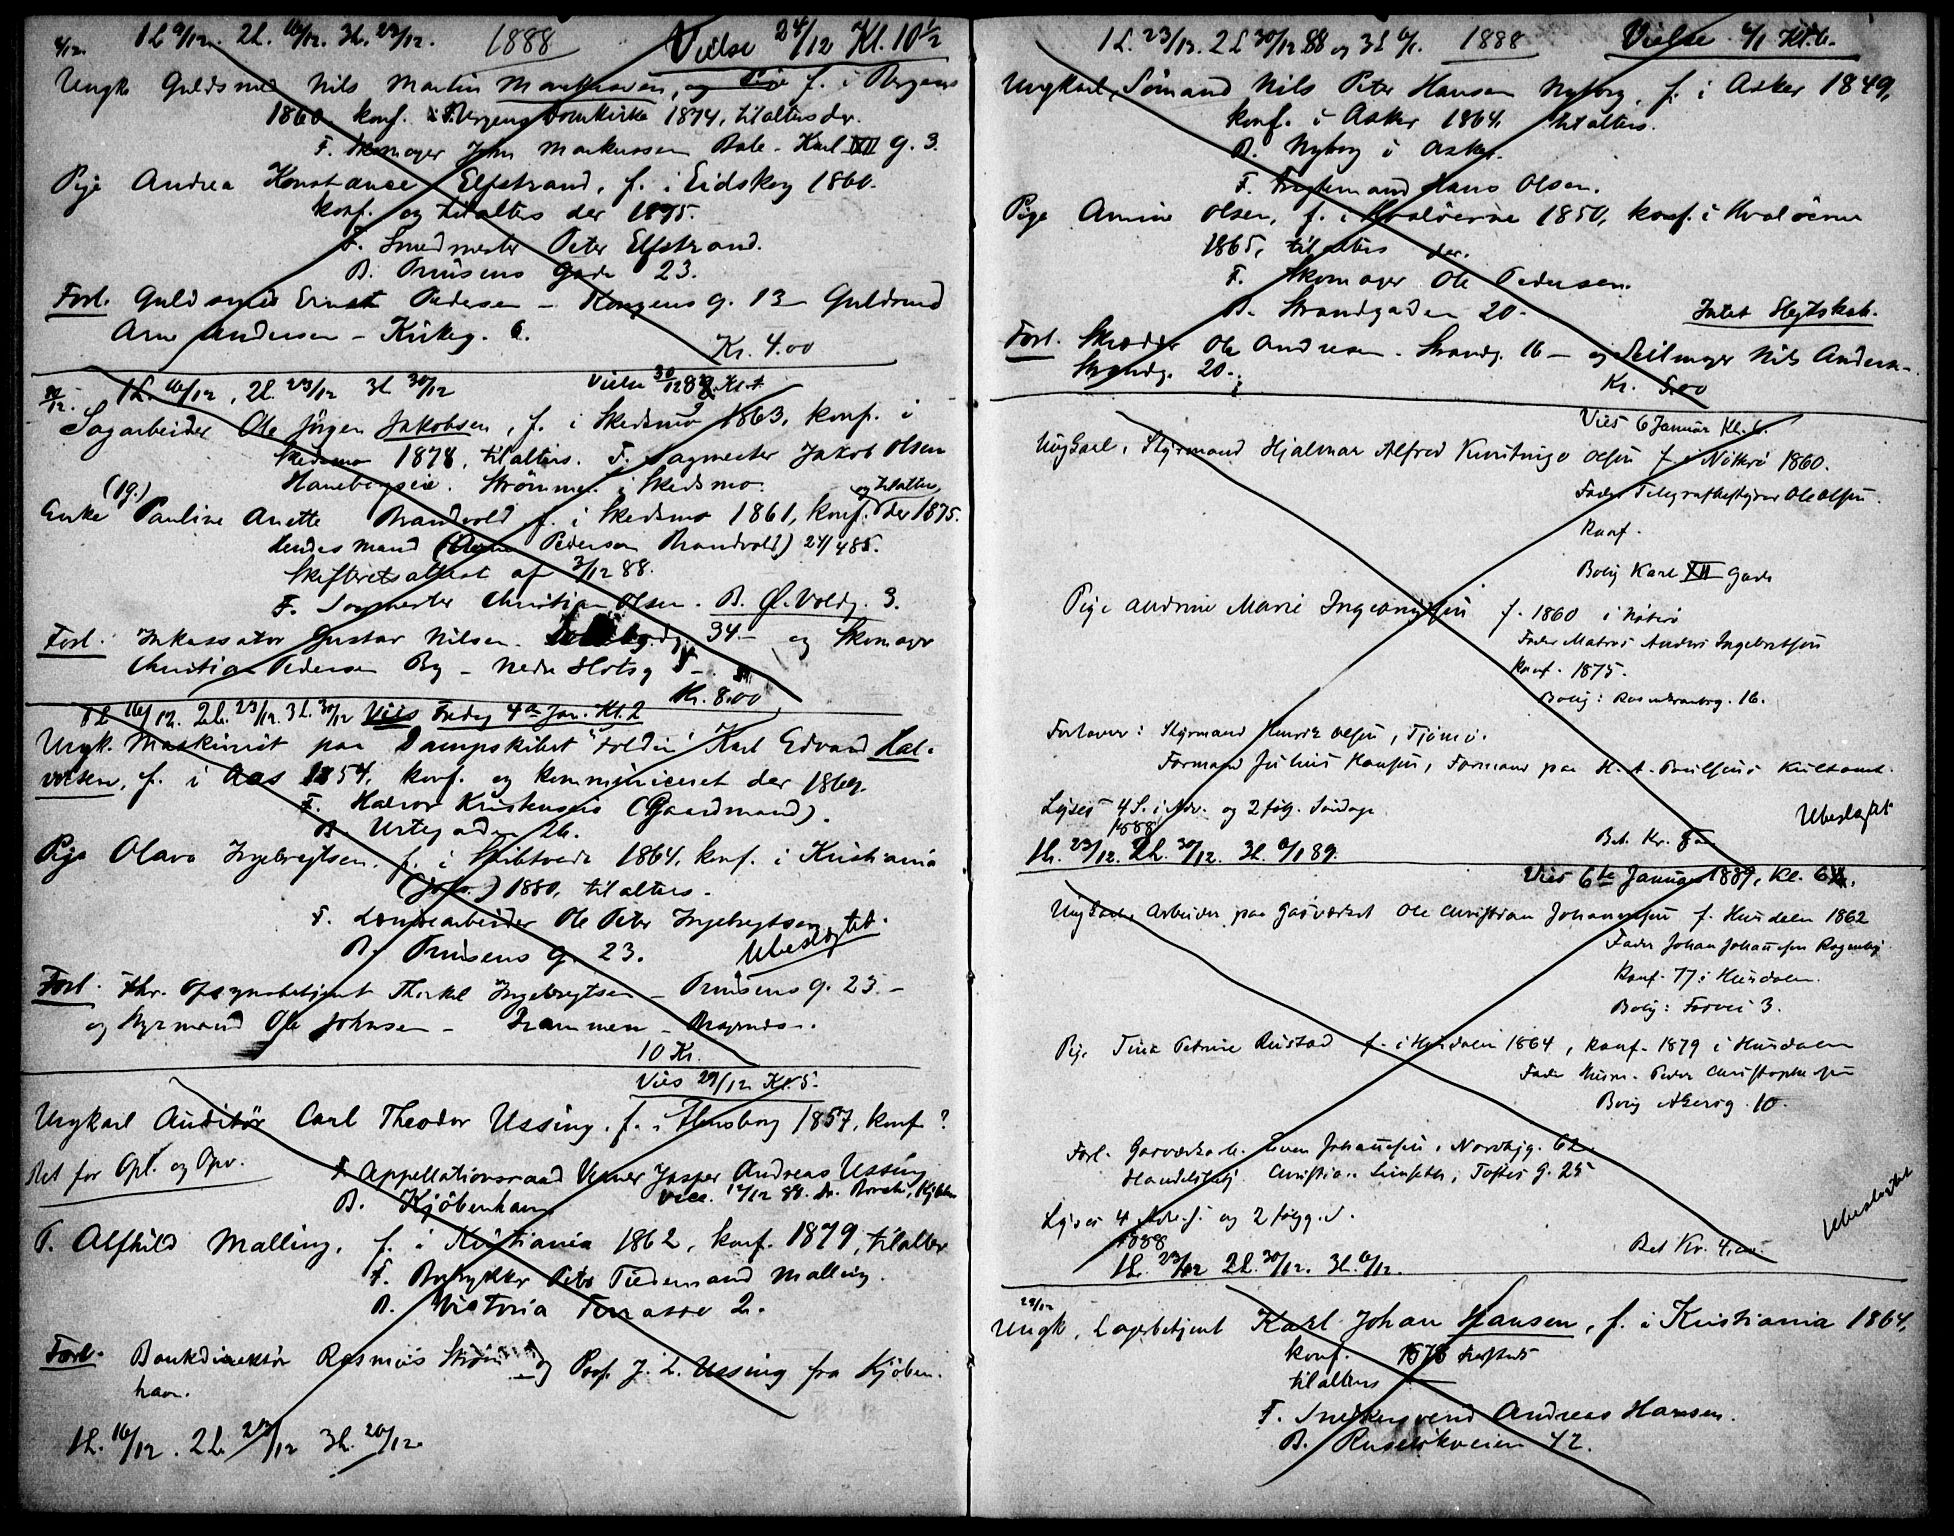 4/12. 1L 9/12. 2L. 16/12. 3L. 23/12. 1888 Vielse 24/12 Kl. 10½
Ungk. Guldsmed Nils Martin Markussen, f. i Bergen
1860 konf. i Bergens Domkirke 1874, tilalters der.
F. Skomager John Markussen Bole - Karl XII G. 3.
Pige Andrea Konstance Elfstrand, f. i Eidskog 1860.
konf. og tilalters der 1875.
F. Smedmester Peter Elfstrand.
B. Prinsens Gade 23.
Forl. Guldsmed Ernst Pedersen - Kongens g. 13 - Guldsmed
Arne Andersen - Kirkeg. 6.
Kr. 4.00
1L. 16/12, 2L. 23/12 3L 30/12 Vielse 30/12 88 Kl.
Sagarbeider Ole Jörgen Jakobsen, f. i Skedsmo 1863, konf. i
Skedsmo 1878, tilalters. F. Sagmester Jakob Olsen
Strømmen i Skedsmo.
(19.) og tilalters
Enke Pauline Anette Brandvold f. i Skedsmo 1861, konf. der 1875.
hendes mand Pedersen Brandvold) 24/4 85.
Skifteretsattest af 3/12 88.
F. Sagmester Christian Olsen. B. Ø. Voldg. 3.
Forl. Inkassator Gustav Nilsen. 34 - og Skomager
Christian Pedersen By - Nedre Slotsg 5 -
Kr. 8.00
1L 16/12. 2L. 23/12. 3L. 30/12 Vies Fredag 4de Jan. Kl. 2
Ungk. Maskinist paa Dampskibet "Foldin" Karl Edvard Hal-
vorsen, f. i Aas 1854, konf. og kommuniceret der 1869.
F. Halvor Kristensen (Gaardmand).
B. Urtegaden 26.
Pige Olava Ingebregtsen, f. i Skibtvedt 1864, konf. i Kristiania
1880, tilalters.
F. Løndearbeider Ole Peter Ingebregtsen
B. Prinsens g. 23. Ubeslegtet.
Forl. Fhr. Opsynsbetjent Thorkel Ingebregtsen - Prinsens g. 23. -
og Styrmand Ole Johnsen - Drammen - Bragernes.
10 Kr.
Vies 29/12 Kl. 5.
Ungkarl Auditør Carl Theodor Ussing, f. i Flensborg 1857, konf ?
Ret for Opl. og Opv. F. Appellationsraad Werner Jasper Andreas Ussing
B. Kjöbenhavn 12/12 88.
P. Alfhild Malling, f. i Kristiania 1862, konf. 1879, tilalters
F. Bogtrykker Peter Tidemand Malling.
B. Viktoria Terrasse 2.
Forl. Bankdirektör Rasmus Strøm og Prof. J. L. Ussing fra Kjöben-
havn.
1L. 16/12. 2L. 23/12 3L. 26/12.
1L. 23/12. 2L 30/12 88 og 3L 6/1. 1888 Vielse 6/1 Kl. 6.
Ungkarl, Sömand Nils Peter Hansen Nyborg, f. i Asker 1849,
konf. i Asker 1864 tilalters.
B. Nyborg i Asker.
F. Hans Olsen.
Pige Amine Olsen, f. i Hvaløerne 1850, konf. i Hvaløerne
1865, tilalters der.
F. Skomager Ole Pedersen.
B. Strandgaden 20. Intet Slegtskab.
Forl. Skræder Ole Andresen - Strandg. 16 - og Seilmager Nils Andersen -
Strandg. 20. Kr. 5.00
Vies 6 Januar Kl. 6.
Ungkarl, Styrmand Hjalmar Alfred Olsen f. Nøtterö 1860.
Fader Telegrafbestyrer Ole Olsen.
Konf.
Bolig Karl XII Gade
Pige Andrine Marie Ingebrigtsen f. 1860 i Nøtterö
Fader Matros Anders Ingebretsen
Konf. 1875.
Bolig: Rosenkranzg. 16.
Forlover: Styrmand Henrik Olsen, Tjømö.
Formand Julius Hansen, Formand paa H. A. Poulsens Kultomt.
Lyses 4 S. i Adv. og 2 følg. Søndage Ubeslægtet
1888 Bet. Kr. 8.00
1L. 23/12. 2L. 30/12. 3L. 6/1 89.
Vies 6te Januar 1889, Kl. 6
Ungkarl Arbeider paa Gasværket Ole Christian Johannesen f. Hurdalen 1862
Fader Johan Johannesen
Konf. 77 i Hurdalen.
Bolig: Torvei 3.
Pige Tina Petrine Rustad f. i Hurdalen 1864, konf. 1879 i Hurdalen
Fader Husm. Peder Christophersen
Bolig Akersg. 10.
Forl. Gasværksarb. Even Johannesen, Nordbyg. 62
Handelsbetj. Christian, Toftes G. 25
Lyses 4 Adv. S. og 2 følg. S. Ubeslægtet
1888 Bet Kr. 4.00
1L. 23/12 2L. 30/12. 3L. 6/12.
29/12
Ungk. Lagerbetjent Karl Johan Hansen, f. i Kristiania 1864,
konf. 1878
tilalters
F. Snedkersvend Andreas Hansen.
B. Ruseløkveien 42.